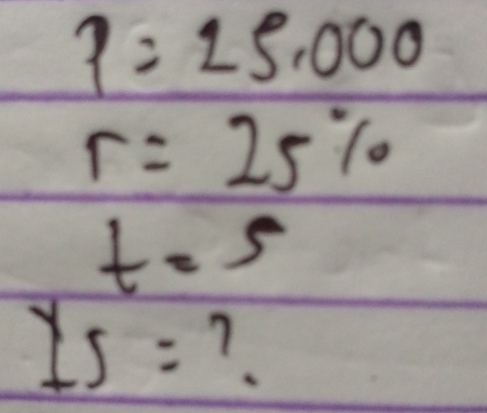 P = 25.000
r = 25%
t = 5
Is = ?